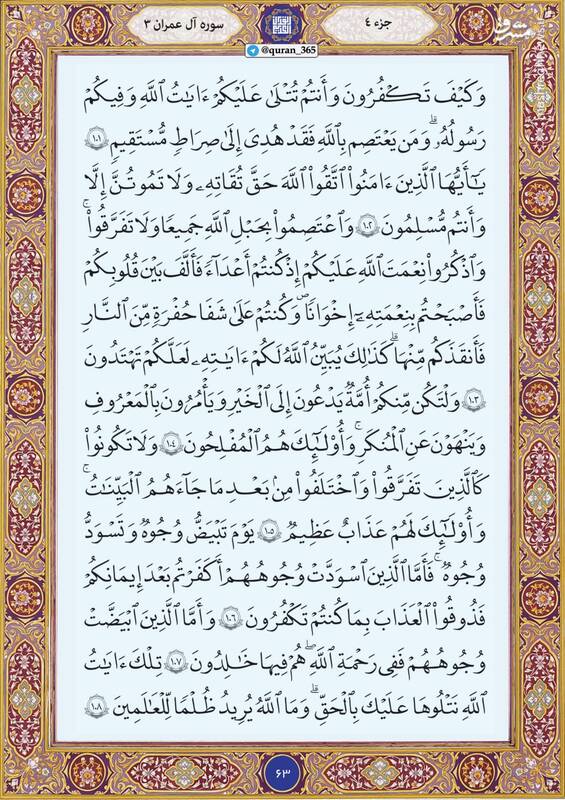 جزء ٤
سوره آل عمران ٣
@quran_365
وَكَيْفَ تَكْفُرُونَ وَأَنتُمْ تُتْلَىٰ عَلَيْكُمْ ءَايَٰتُ ٱللَّهِ وَفِيكُمْ
رَسُولُهُۥ ۗ وَمَن يَعْتَصِم بِٱللَّهِ فَقَدْ هُدِىَ إِلَىٰ صِرَٰطٍ مُّسْتَقِيمٍ ١٠١
يَٰٓأَيُّهَا ٱلَّذِينَ ءَامَنُوا۟ ٱتَّقُوا۟ ٱللَّهَ حَقَّ تُقَاتِهِۦ وَلَا تَمُوتُنَّ إِلَّا
وَأَنتُم مُّسْلِمُونَ ١٠٢ وَٱعْتَصِمُوا۟ بِحَبْلِ ٱللَّهِ جَمِيعًا وَلَا تَفَرَّقُوا۟ ۚ
وَٱذْكُرُوا۟ نِعْمَتَ ٱللَّهِ عَلَيْكُمْ إِذْ كُنتُمْ أَعْدَآءً فَأَلَّفَ بَيْنَ قُلُوبِكُمْ
فَأَصْبَحْتُم بِنِعْمَتِهِۦٓ إِخْوَٰنًا وَكُنتُمْ عَلَىٰ شَفَا حُفْرَةٍ مِّنَ ٱلنَّارِ
فَأَنقَذَكُم مِّنْهَا ۗ كَذَٰلِكَ يُبَيِّنُ ٱللَّهُ لَكُمْ ءَايَٰتِهِۦ لَعَلَّكُمْ تَهْتَدُونَ
١٠٣ وَلْتَكُن مِّنكُمْ أُمَّةٌ يَدْعُونَ إِلَى ٱلْخَيْرِ وَيَأْمُرُونَ بِٱلْمَعْرُوفِ
وَيَنْهَوْنَ عَنِ ٱلْمُنكَرِ ۚ وَأُو۟لَٰٓئِكَ هُمُ ٱلْمُفْلِحُونَ ١٠٤ وَلَا تَكُونُوا۟
كَٱلَّذِينَ تَفَرَّقُوا۟ وَٱخْتَلَفُوا۟ مِنۢ بَعْدِ مَا جَآءَهُمُ ٱلْبَيِّنَٰتُ ۚ
وَأُو۟لَٰٓئِكَ لَهُمْ عَذَابٌ عَظِيمٌ ١٠٥ يَوْمَ تَبْيَضُّ وُجُوهٌ وَتَسْوَدُّ
وُجُوهٌ ۚ فَأَمَّا ٱلَّذِينَ ٱسْوَدَّتْ وُجُوهُهُمْ أَكَفَرْتُم بَعْدَ إِيمَٰنِكُمْ
فَذُوقُوا۟ ٱلْعَذَابَ بِمَا كُنتُمْ تَكْفُرُونَ ١٠٦ وَأَمَّا ٱلَّذِينَ ٱبْيَضَّتْ
وُجُوهُهُمْ فَفِى رَحْمَةِ ٱللَّهِ ۖ هُمْ فِيهَا خَٰلِدُونَ ١٠٧ تِلْكَ ءَايَٰتُ
ٱللَّهِ نَتْلُوهَا عَلَيْكَ بِٱلْحَقِّ ۗ وَمَا ٱللَّهُ يُرِيدُ ظُلْمًا لِّلْعَٰلَمِينَ ١٠٨
٦٣